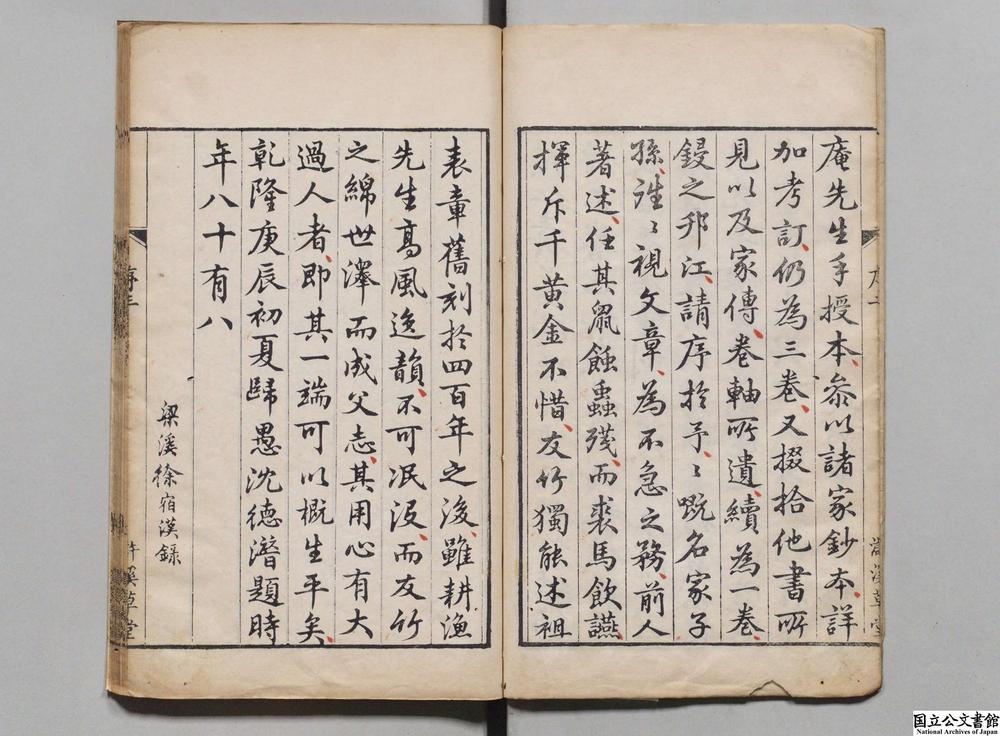 庵先生手授本叅以諸家鈔本詳
加考訂仍為三卷又掇拾他書所
見以及家傳卷軸所遺續為一卷
鋟之邗江請序於予〻嘅名家子
孫往〻視文章為不急之務前人
著述任其鼠蝕蟲殘而裘馬飲讌
揮斥千黄金不惜友竹獨能述祖
表章舊刻於四百年之後雖耕漁
先生高風逸韻不可泯沒而友竹
之綿世澤而成父志其用心有大
過人者即其一端可以概生平矣
乾隆庚辰初夏歸愚沈德潛題時
年八十有八
梁溪徐宿漢錄
序三
国立公文書館
National Archives of Japan